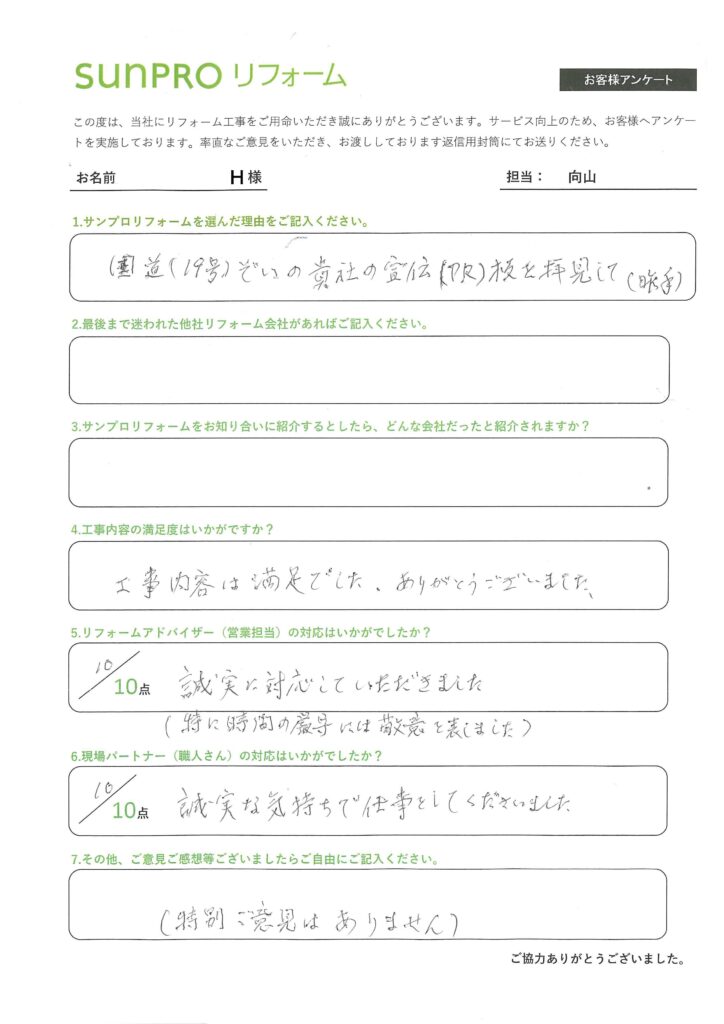 SUNPRO リフォーム
お客様アンケート
この度は、当社にリフォーム工事をご用命いただき誠にありがとうございます。サービス向上のため、お客様へアンケー
トを実施しております。率直なご意見をいただき、お渡ししております返信用封筒にてお送りください。
お名前 H 様 担当： 向山
1.サンプロリフォームを選んだ理由をご記入ください。
国道(19号)ぞいの貴社の宣伝(PR)板を拝見して
2.最後まで迷われた他社リフォーム会社があればご記入ください。
3.サンプロリフォームをお知り合いに紹介するとしたら、どんな会社だったと紹介されますか？
4.工事内容の満足度はいかがですか？
工事内容は満足でした、ありがとうございました、
5.リフォームアドバイザー（営業担当）の対応はいかがでしたか？
10/10点 誠実に対応していただきました
(特に時間の厳守には敬意を表しました)
6.現場パートナー（職人さん）の対応はいかがでしたか？
10/10点 誠実な気持ちで仕事をしてくださいました
7.その他、ご意見ご感想等ございましたらご自由にご記入ください。
(特別ご意見はありません)
ご協力ありがとうございました。